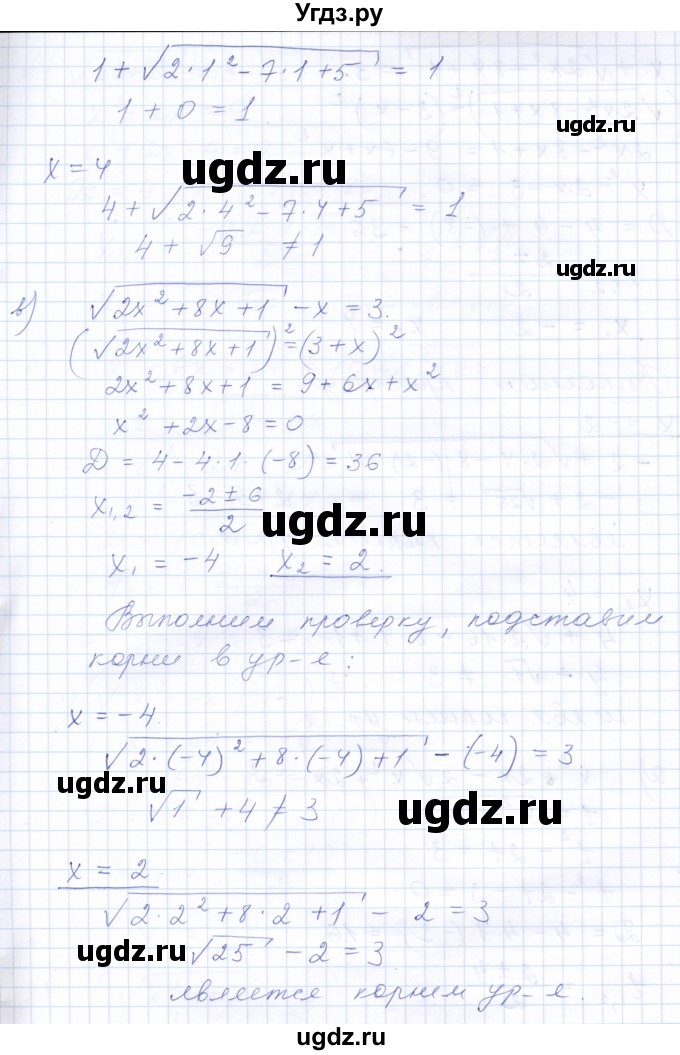 Угдз.ру
1 + √(2·1² - 7·1 + 5) = 1
1 + 0 = 1
ugdz.ru
ugdz.ru
x = 4
4 + √(2·4² - 7·4 + 5) = 1
4 + √9 ≠ 1
ugdz.ru
в) √(2x² + 8x + 1) - x = 3.
(√(2x² + 8x + 1))² = (3 + x)²
2x² + 8x + 1 = 9 + 6x + x²
x² + 2x - 8 = 0
Д = 4 - 4·1·(-8) = 36
x₁,₂ = (-2 ± 6)/2
ugdz.ru
x₁ = -4 x₂ = 2.
Выполним проверку, подставим
корни в ур-е:
x = -4.
√(2·(-4)² + 8·(-4) + 1) - (-4) = 3
ugdz.ru
√1 + 4 ≠ 3
ugdz.ru
x = 2
√(2·2² + 8·2 + 1) - 2 = 3
√25 - 2 = 3
ugdz.ru
ugdz.ru
является корнем ур-е.
ugdz.ru